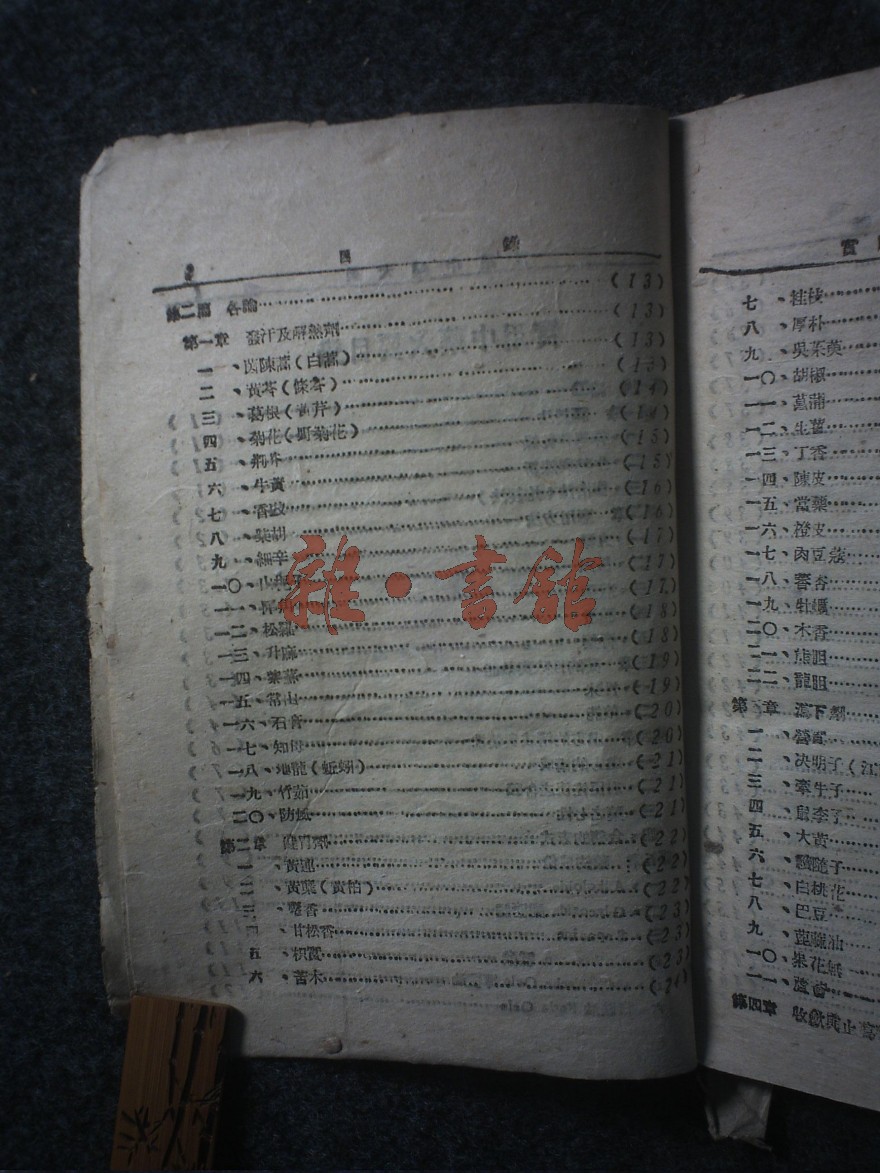 目 錄
第二篇 各論……(13)
第一章 發汗及解熱劑……(13)
一、茵陳蒿(白蒿)……(13)
二、黃芩(條芩)……(14)
三、葛根(黃芹)……(14)
四、菊花(野菊花)……(15)
五、荊芥……(15)
六、牛黃……(16)
七、香豉……(16)
八、柴胡……(17)
九、細辛……(17)
一〇、山……(17)
一一、……(18)
一二、松蘿……(18)
一三、升麻……(19)
一四、紫蘇……(19)
一五、常山……(20)
一六、石膏……(20)
一七、知母……(21)
一八、地龍(蚯蚓)……(21)
一九、竹茹……(21)
二〇、防風……(22)
第二章 健胃劑……(22)
一、黃連……(22)
二、黃蘗(黃柏)……(23)
三、麝香……(23)
四、甘松香……(23)
五、枳實……(24)
六、苦木……
雜·書館
七、桂枝……
八、厚朴……
九、吳茱萸……
一〇、胡椒……
一一、菖蒲……
一二、生薑……
一三、丁香……
一四、陳皮……
一五、當藥……
一六、橙皮……
一七、肉豆蔻……
一八、……
一九、牡蠣……
二〇、木香……
二一、熊胆……
二二、龍胆……
第三章 瀉下劑……
一、營實……
二、決明子(江
三、牽牛子……
四、鼠李子……
五、大黃……
六、續隨子……
七、白桃花……
八、巴豆……
九、蓖麻油……
一〇、……
一一、蘆薈……
第四章 收斂與止瀉